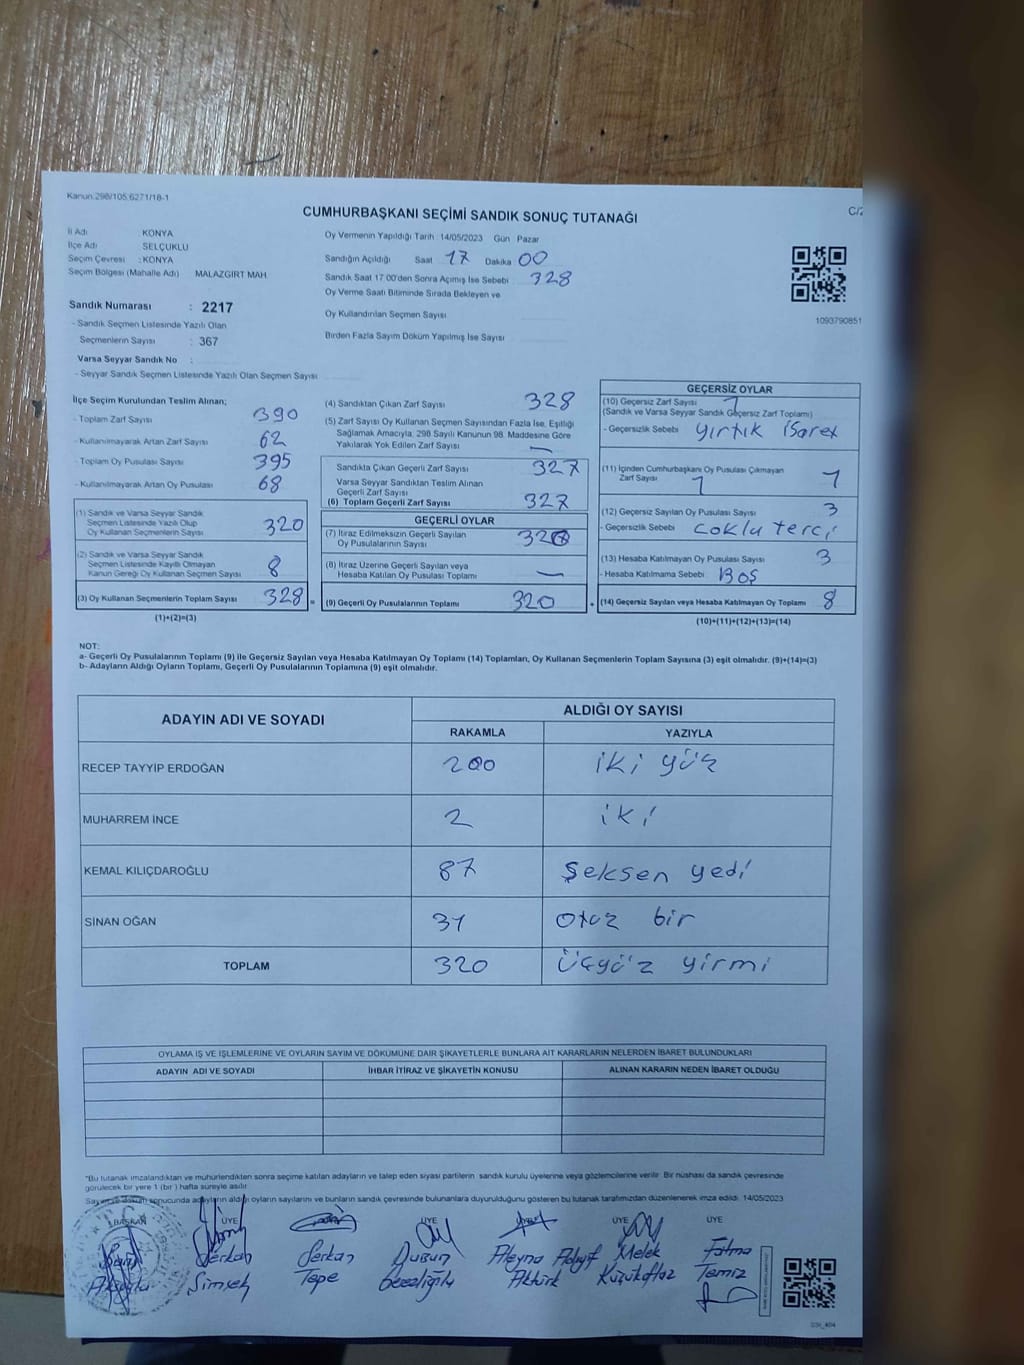 Kanun:298/105;6271/18-1
CUMHURBAŞKANI SEÇİMİ SANDIK SONUÇ TUTANAĞI
C/2
İl Adı KONYA
İlçe Adı SELÇUKLU
Seçim Çevresi : KONYA
Seçim Bölgesi (Mahalle Adı) MALAZGİRT MAH
Sandık Numarası : 2217
- Sandık Seçmen Listesinde Yazılı Olan
Seçmenlerin Sayısı : 367
Varsa Seyyar Sandık No :
- Seyyar Sandık Seçmen Listesinde Yazılı Olan Seçmen Sayısı
Oy Vermenin Yapıldığı Tarih :14/05/2023 Gün Pazar
Sandığın Açıldığı Saat 17 Dakika 00
Sandık Saat 17.00'den Sonra Açılmış İse Sebebi 328
Oy Verme Saati Bitiminde Sırada Bekleyen ve
Oy Kullandırılan Seçmen Sayısı
Birden Fazla Sayım Döküm Yapılmış İse Sayısı
1093790851
İlçe Seçim Kurulundan Teslim Alınan;
- Toplam Zarf Sayısı 390
- Kullanılmayarak Artan Zarf Sayısı 62
- Toplam Oy Pusulası Sayısı 395
- Kullanılmayarak Artan Oy Pusulası 68
(1) Sandık ve Varsa Seyyar Sandık
Seçmen Listesinde Yazılı Olup
Oy Kullanan Seçmenlerin Sayısı 320
(2) Sandık ve Varsa Seyyar Sandık
Seçmen Listesinde Kayıtlı Olmayan
Kanun Gereği Oy Kullanan Seçmen Sayısı 8
(3) Oy Kullanan Seçmenlerin Toplam Sayısı 328 =
(1)+(2)=(3)
(4) Sandıktan Çıkan Zarf Sayısı 328
(5) Zarf Sayısı Oy Kullanan Seçmen Sayısından Fazla İse, Eşitliği
Sağlamak Amacıyla, 298 Sayılı Kanunun 98. Maddesine Göre
Yakılarak Yok Edilen Zarf Sayısı —
Sandıkta Çıkan Geçerli Zarf Sayısı 327
Varsa Seyyar Sandıktan Teslim Alınan
Geçerli Zarf Sayısı
(6) Toplam Geçerli Zarf Sayısı 327
GEÇERLİ OYLAR
(7) İtiraz Edilmeksizin Geçerli Sayılan
Oy Pusulalarının Sayısı 320
(8) İtiraz Üzerine Geçerli Sayılan veya
Hesaba Katılan Oy Pusulası Toplamı —
(9) Geçerli Oy Pusulalarının Toplamı 320 +
GEÇERSİZ OYLAR
(10) Geçersiz Zarf Sayısı 1
(Sandık ve Varsa Seyyar Sandık Geçersiz Zarf Toplamı)
- Geçersizlik Sebebi yırtık işaret
(11) İçinden Cumhurbaşkanı Oy Pusulası Çıkmayan
Zarf Sayısı 1 1
(12) Geçersiz Sayılan Oy Pusulası Sayısı 3
- Geçersizlik Sebebi Çoklu terci
(13) Hesaba Katılmayan Oy Pusulası Sayısı 3
- Hesaba Katılmama Sebebi Boş
(14) Geçersiz Sayılan veya Hesaba Katılmayan Oy Toplamı 8
(10)+(11)+(12)+(13)=(14)
NOT:
a- Geçerli Oy Pusulalarının Toplamı (9) ile Geçersiz Sayılan veya Hesaba Katılmayan Oy Toplamı (14) Toplamları, Oy Kullanan Seçmenlerin Toplam Sayısına (3) eşit olmalıdır. (9)+(14)=(3)
b- Adayların Aldığı Oyların Toplamı, Geçerli Oy Pusulalarının Toplamına (9) eşit olmalıdır.
ADAYIN ADI VE SOYADI ALDIĞI OY SAYISI
RAKAMLA YAZIYLA
RECEP TAYYİP ERDOĞAN 200 iki yüz
MUHARREM İNCE 2 iki
KEMAL KILIÇDAROĞLU 87 Şeksen yedi
SİNAN OĞAN 31 Otuz bir
TOPLAM 320 Üçyüz yirmi
OYLAMA İŞ VE İŞLEMLERİNE VE OYLARIN SAYIM VE DÖKÜMÜNE DAİR ŞİKAYETLERLE BUNLARA AİT KARARLARIN NELERDEN İBARET BULUNDUKLARI
ADAYIN ADI VE SOYADI İHBAR İTİRAZ VE ŞİKAYETİN KONUSU ALINAN KARARIN NEDEN İBARET OLDUĞU
*Bu tutanak imzalandıktan ve mühürlendikten sonra seçime katılan adayların ve talep eden siyasi partilerin sandık kurulu üyelerine veya gözlemcilerine verilir. Bir nüshası da sandık çevresinde
görülecek bir yere 1 (bir) hafta süreyle asılır.
Sayım ve döküm sonucunda adayların aldığı oyların sayılarını ve bunların sandık çevresinde bulunanlara duyurulduğunu gösteren bu tutanak tarafımızdan düzenlenerek imza edildi. 14/05/2023
BAŞKAN ÜYE ÜYE ÜYE ÜYE ÜYE
Serkan Serkan Aleyna Melek Fatma
Şimşek Tepe Aktürk Temiz